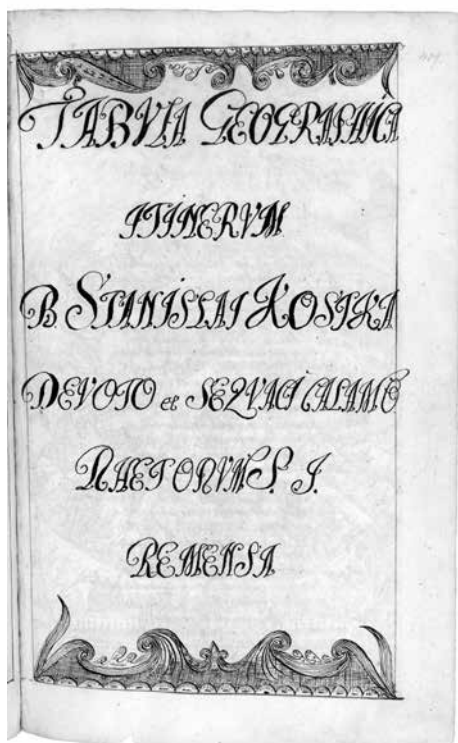 TABVLA GEOGRAPHICA
ITINERVM
B. STANISLAI KOSTKA
DEVOTO et SEQVACI CALAMO
RHETORVM S. J.
REMENSA